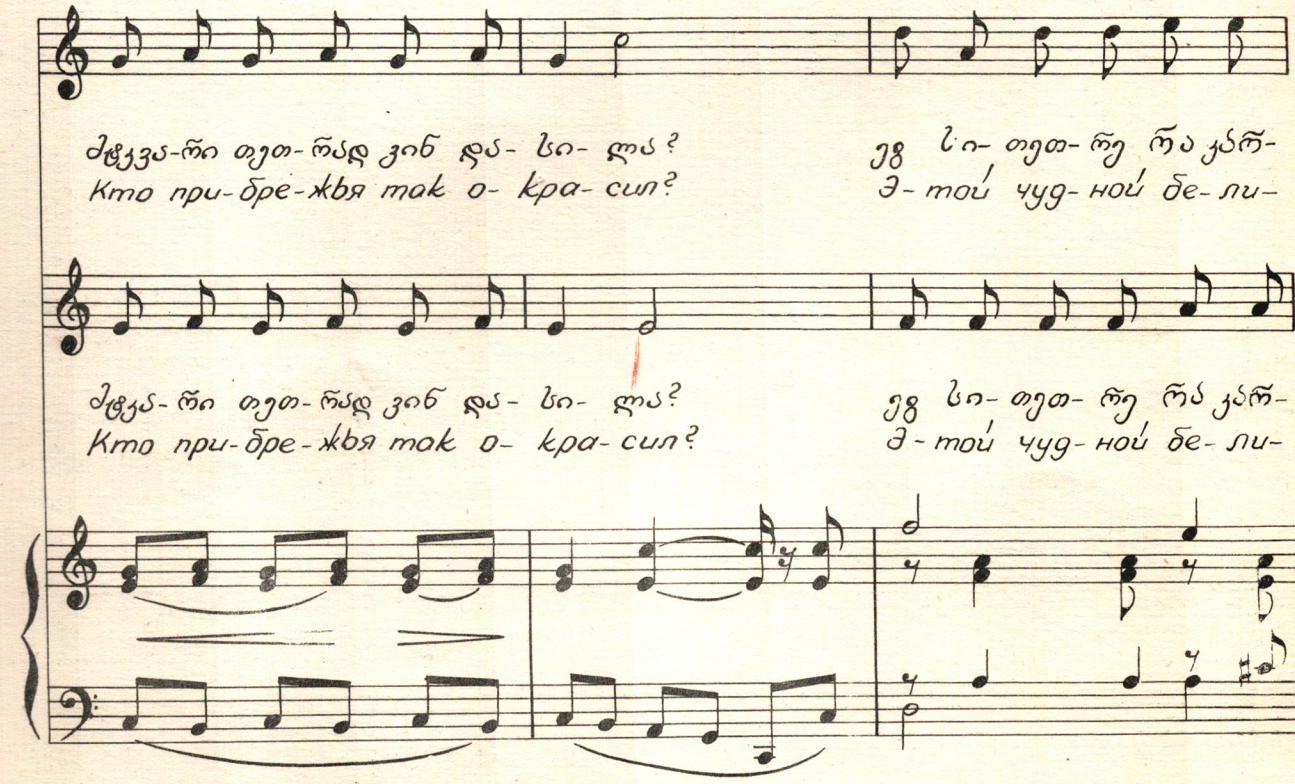 მტკვა-რი თეთ-რად ვინ და- სი- ლა? ეგ სი- თეთ- რე რა კარ-
Кто при-бре-жья так о- кра- сил? Э- той чуд- ной бе- ли-
მტკვა- რი თეთ-რად ვინ და- სი- ლა? ეგ სი- თეთ- რე რა კარ-
Кто при-бре-жья так о- кра- сил? Э- той чуд- ной бе- ли-